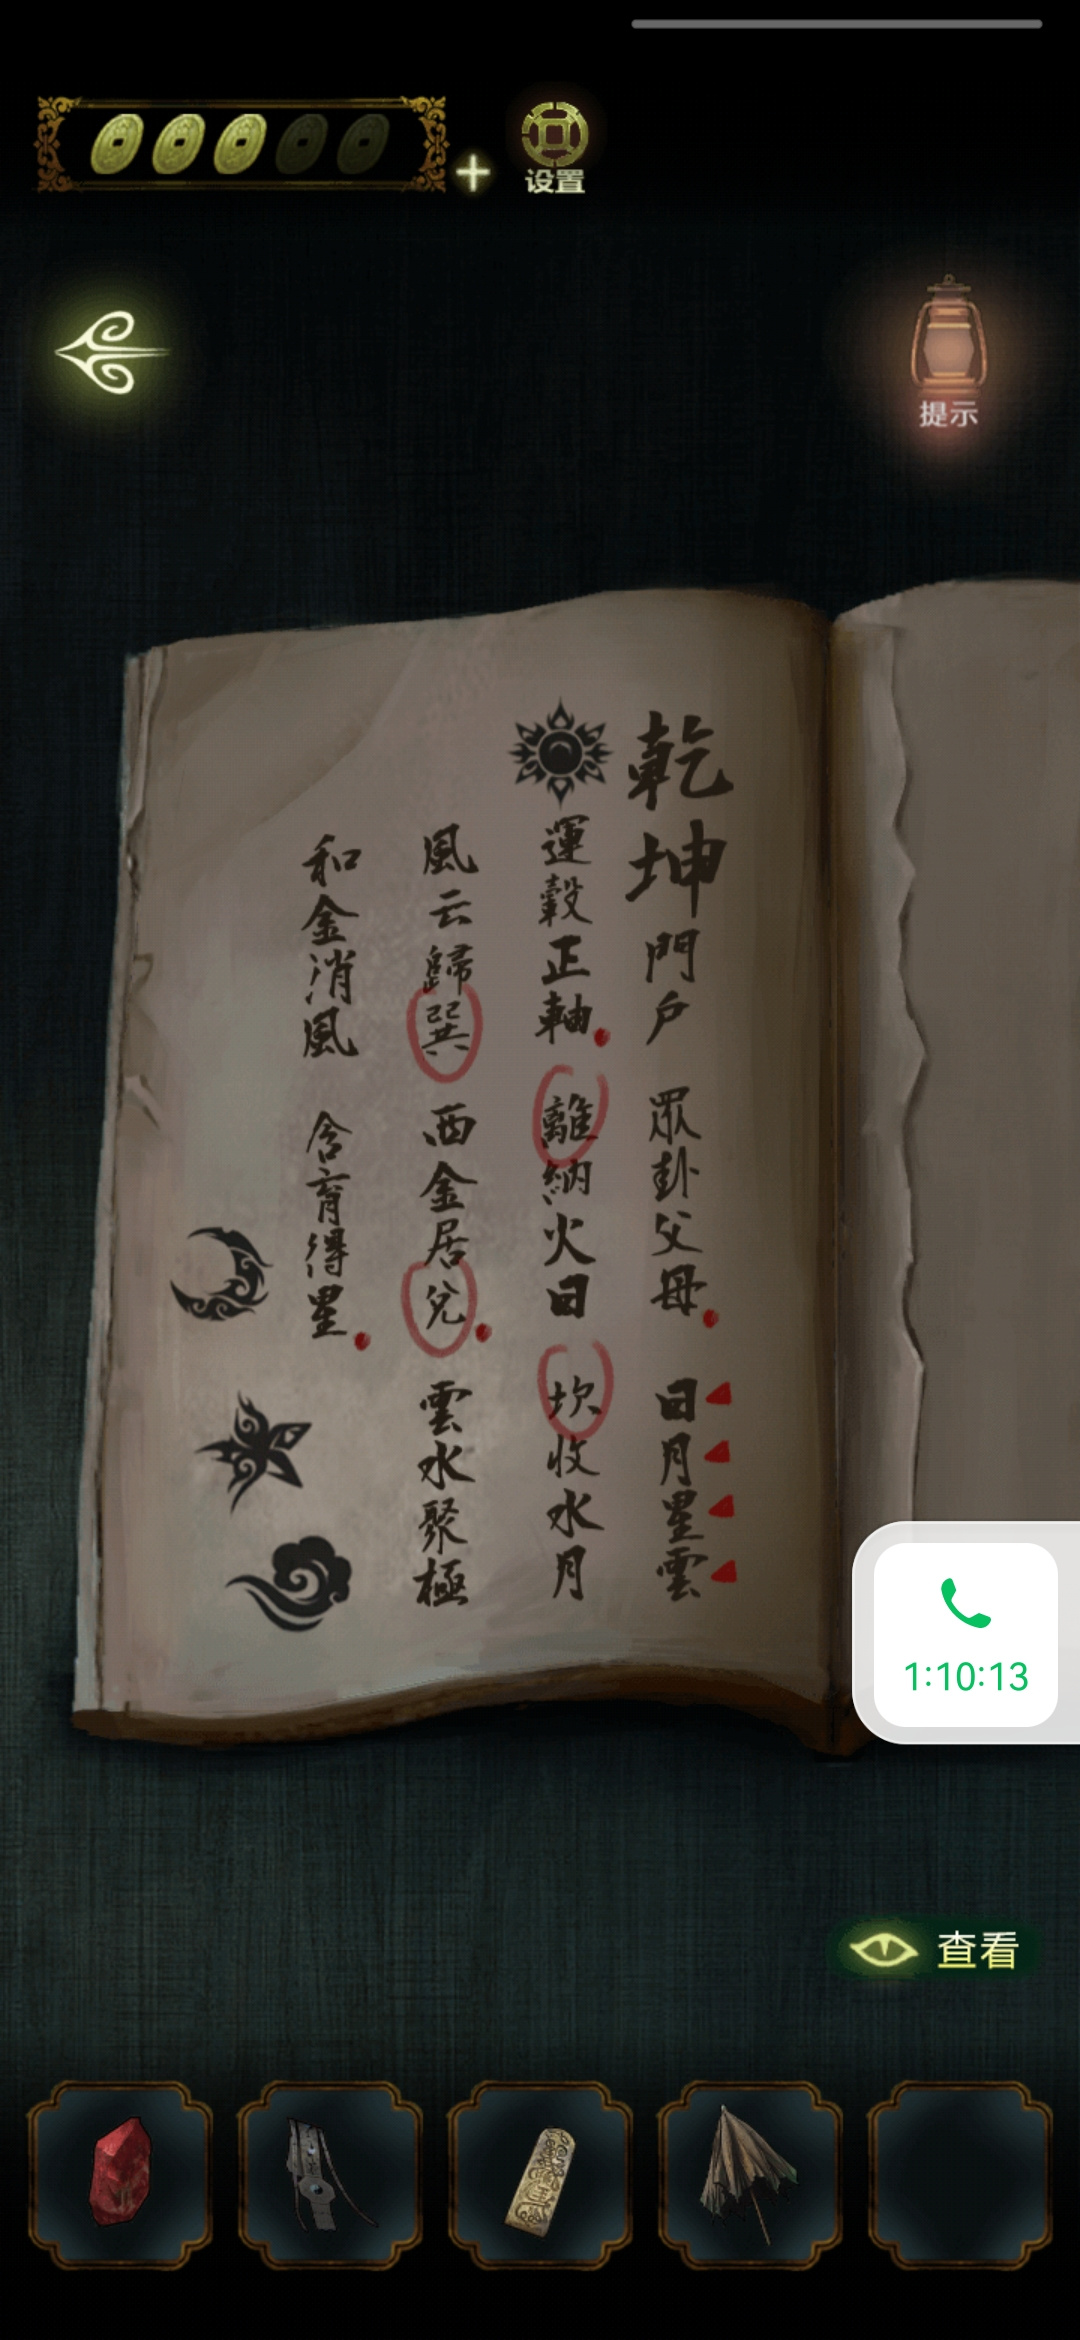 设置
提示
乾坤門戶 眾卦父母 日月星雲
運轂正軸 離納火日 坎收水月
風云歸巽 西金居兌 雲水聚極
和金消風 含育得星
1:10:13
查看